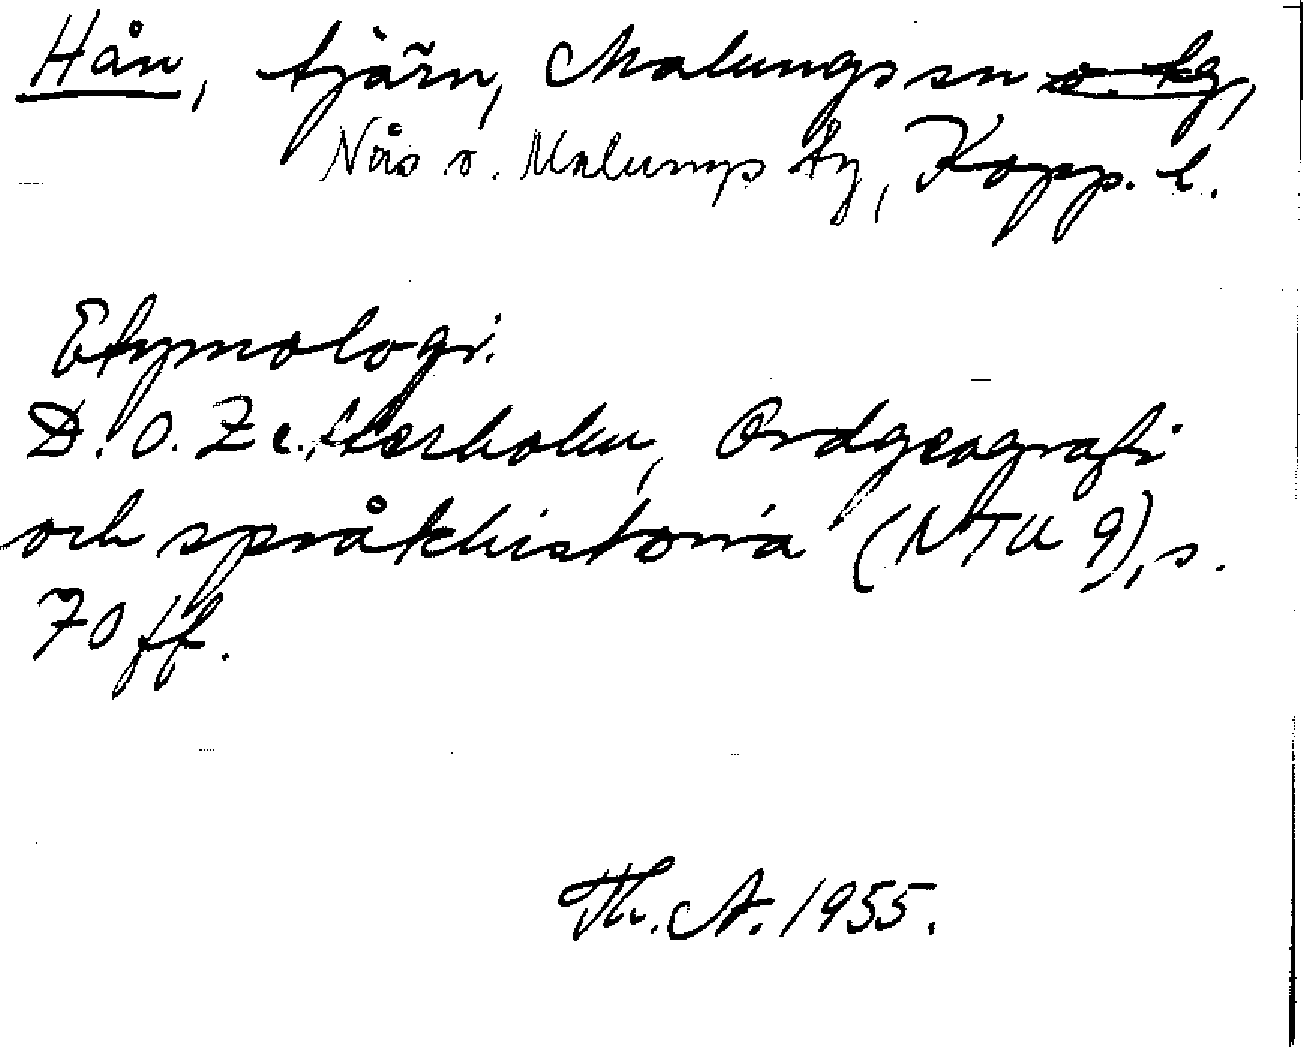 Hån, tjärn, Malungs sn o. tg,
Nås o. Malungs tg, Kopp. l.
Etymologi.
D. O. Zetterholm, Ordgeografi
och språkhistoria (NTU 9), s.
70 ff.
Th. A. 1955.